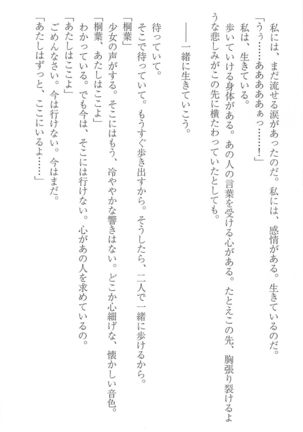 私には、まだ流せる涙があったのだ。私には、感情がある。生きているのだ。
「うぅ……ああああぁっ……！」
　私は、生きている。
　歩いていける身体がある。あの人の言葉を受ける心がある。たとえこの先、胸張り裂けるよ
うな悲しみがこの先に横たわっていたとしても。
　――一緒に生きていこう。
　待っていて。
　そこで待っていて。もうすぐ歩き出すから。そうしたら、二人で一緒に歩けるから。
「桐葉」
　少女の声がする。そこにはもう、冷ややかな響きはない。どこか心細げな、懐かしい音色。
「桐葉、あたしはここよ」
　わかっている。でも今は、そこには行けない。心があの人を求めているの。
　ごめんなさい。今は行けない。今はまだ。
「あたしはずっと、ここにいるよ……」